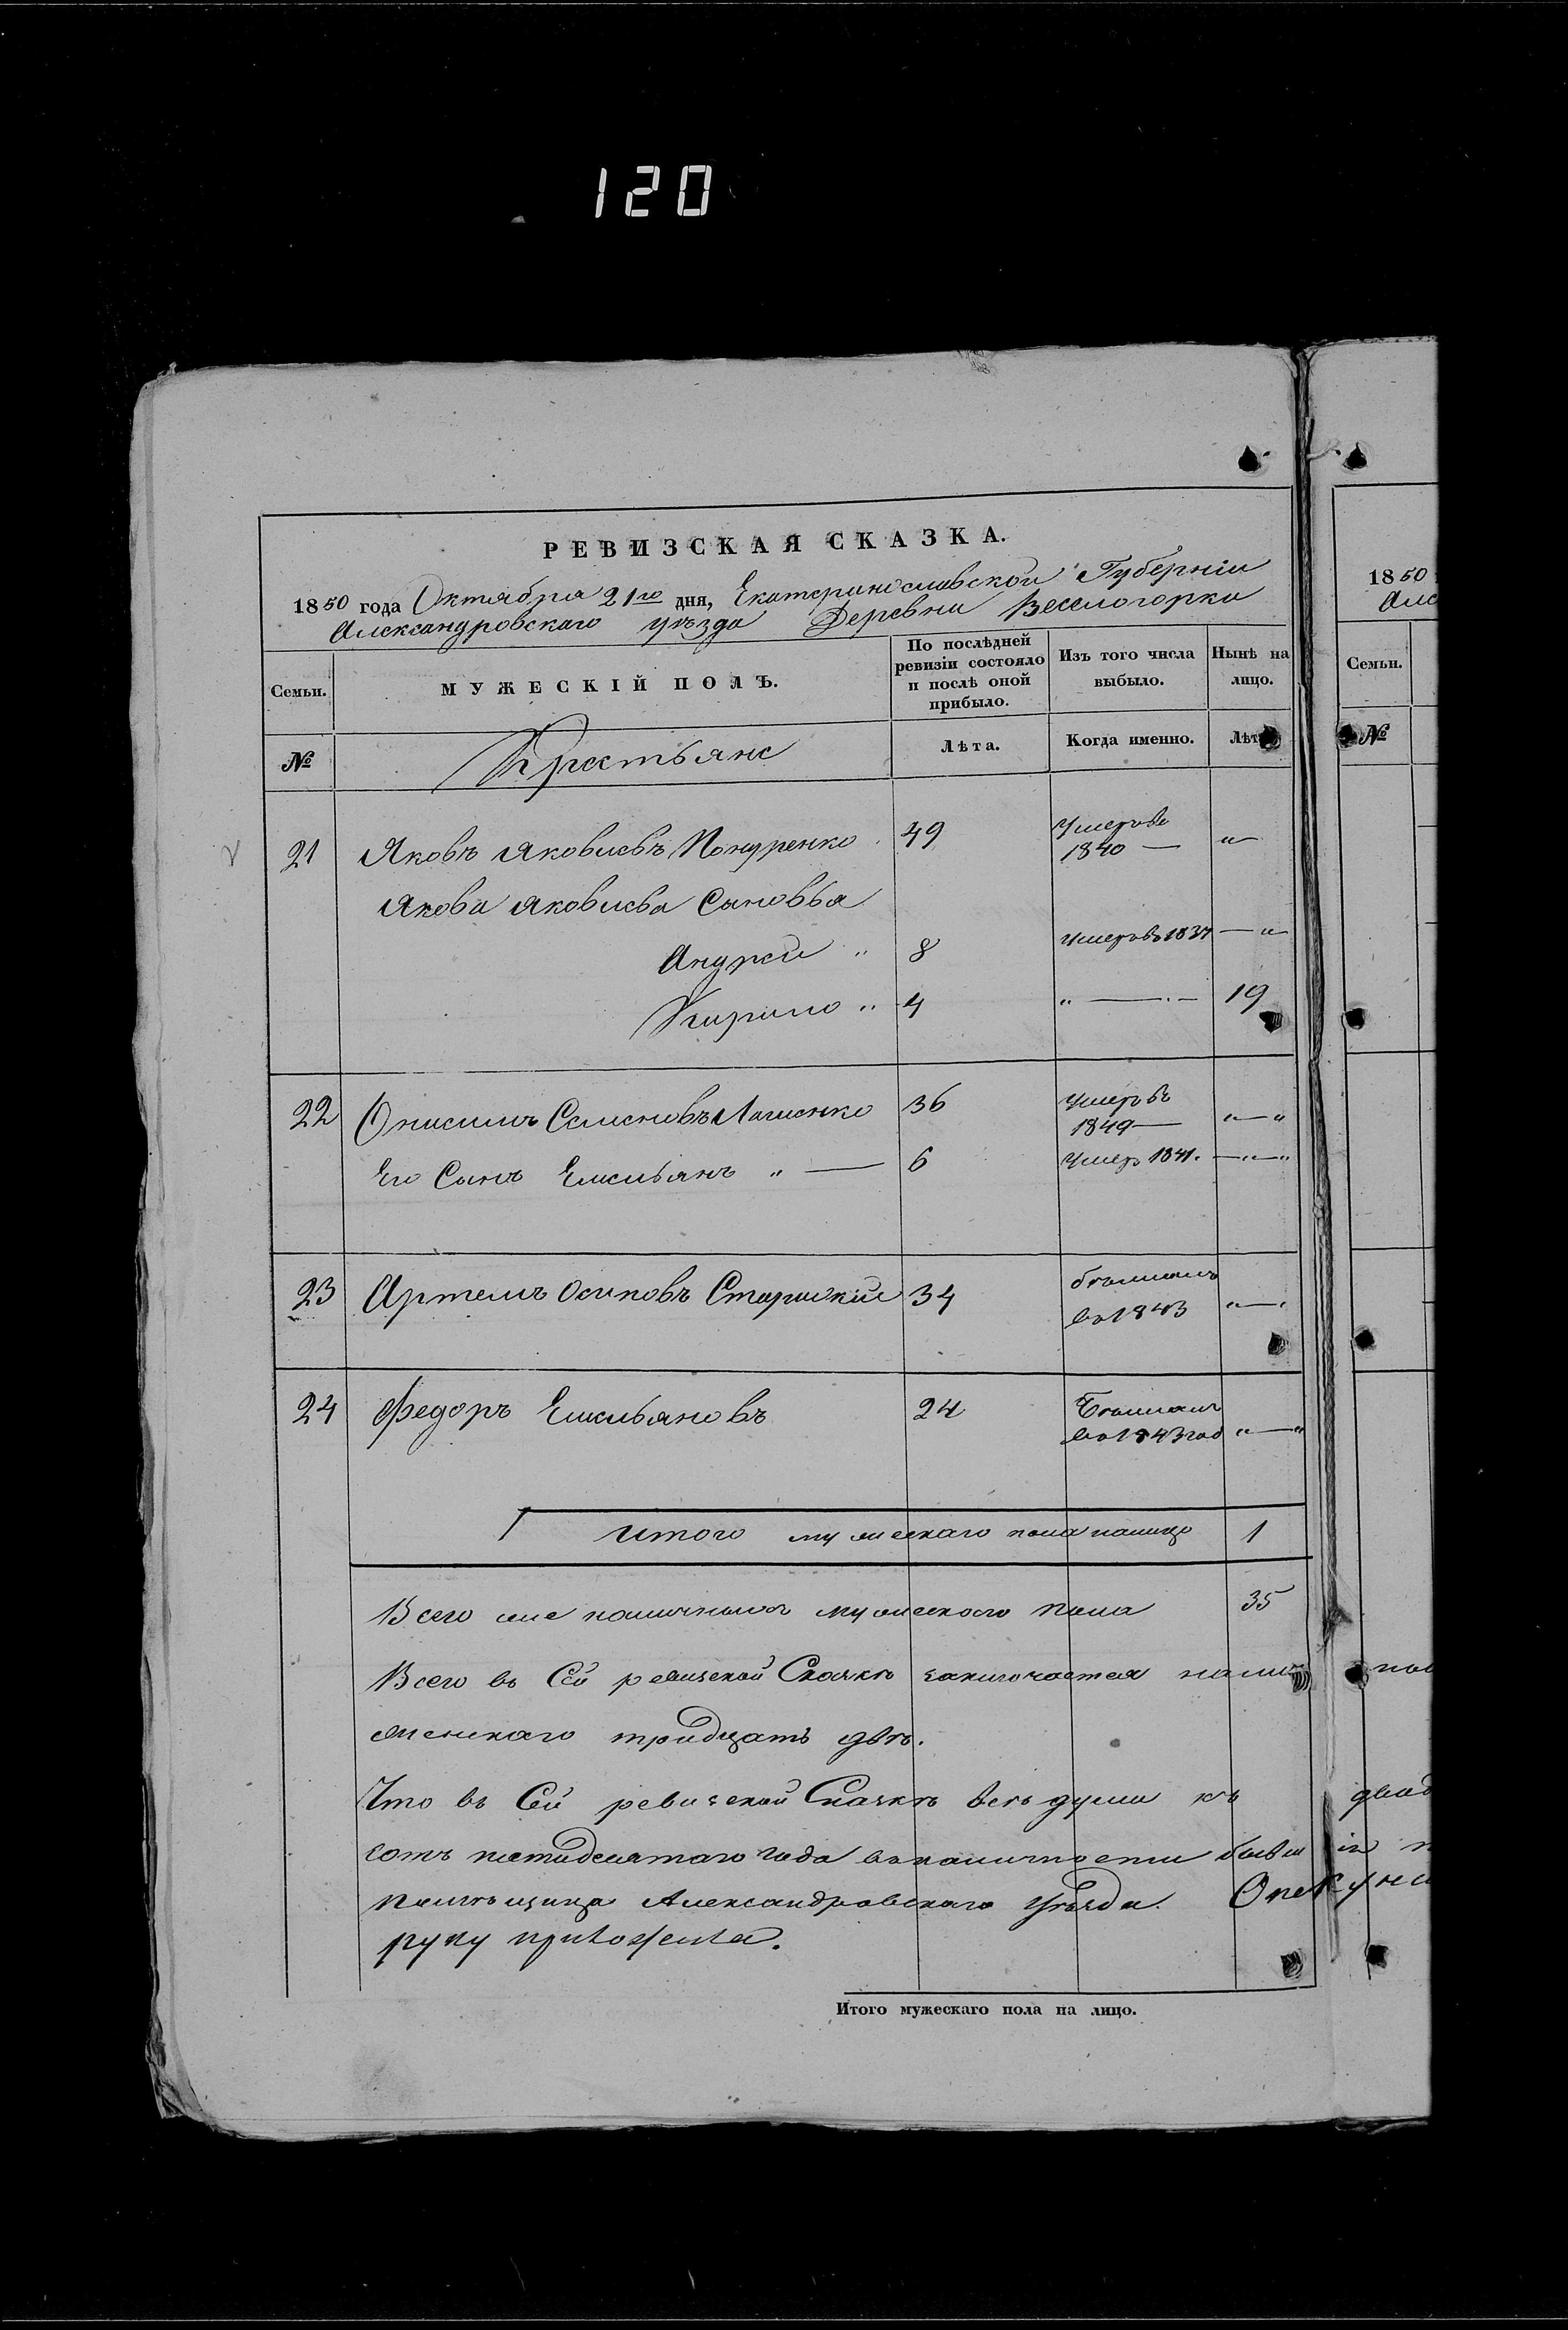 120
РЕВИЗСКАЯ СКАЗКА.
1850 года Октября 21го дня, Екатеринославской Губерніи
Александровскаго уѣзда Деревни Веселогорки
Семьи.
МУЖЕСКІЙ ПОЛЪ.
По послѣдней ревизіи состояло и послѣ оной прибыло.
Изъ того числа выбыло.
Нынѣ на лицо.
№
Крестьяне
Лѣта.
Когда именно.
Лѣт
21 Яковъ Яковлевъ Понуренко 49 Умеръ въ 1840 — "
Якова Яковлева Сыновья
Андрей " 8 Умеръ въ 1837 — "
Кирило " 4 " — 19
22 Онисимъ Семеновъ 36 Умеръ въ 1849 — " — "
Его Сынъ Емельянъ " — 6 Умеръ 1841. — " — "
23 Артемъ Осиповъ Старицкій 34 бѣжалъ во 1843 " — "
24 Федоръ Емельяновъ 24 Бѣжалъ во 1843 год " — "
Итого мужескаго пола налицо 1
Всего же наличныхъ мужескаго пола 35
Всего въ Сей ревизской Сказкѣ заключается налич
женскаго тридцать двѣ.
Что въ Сей ревизской Сказкѣ всѣ души къ
сотъ пятидесятаго года въ наличности бывш
помѣщица Александровскаго уѣзда. Опекуни
руку приложила.
Итого мужескаго пола на лицо.
1850
Алс
Семьи.
№